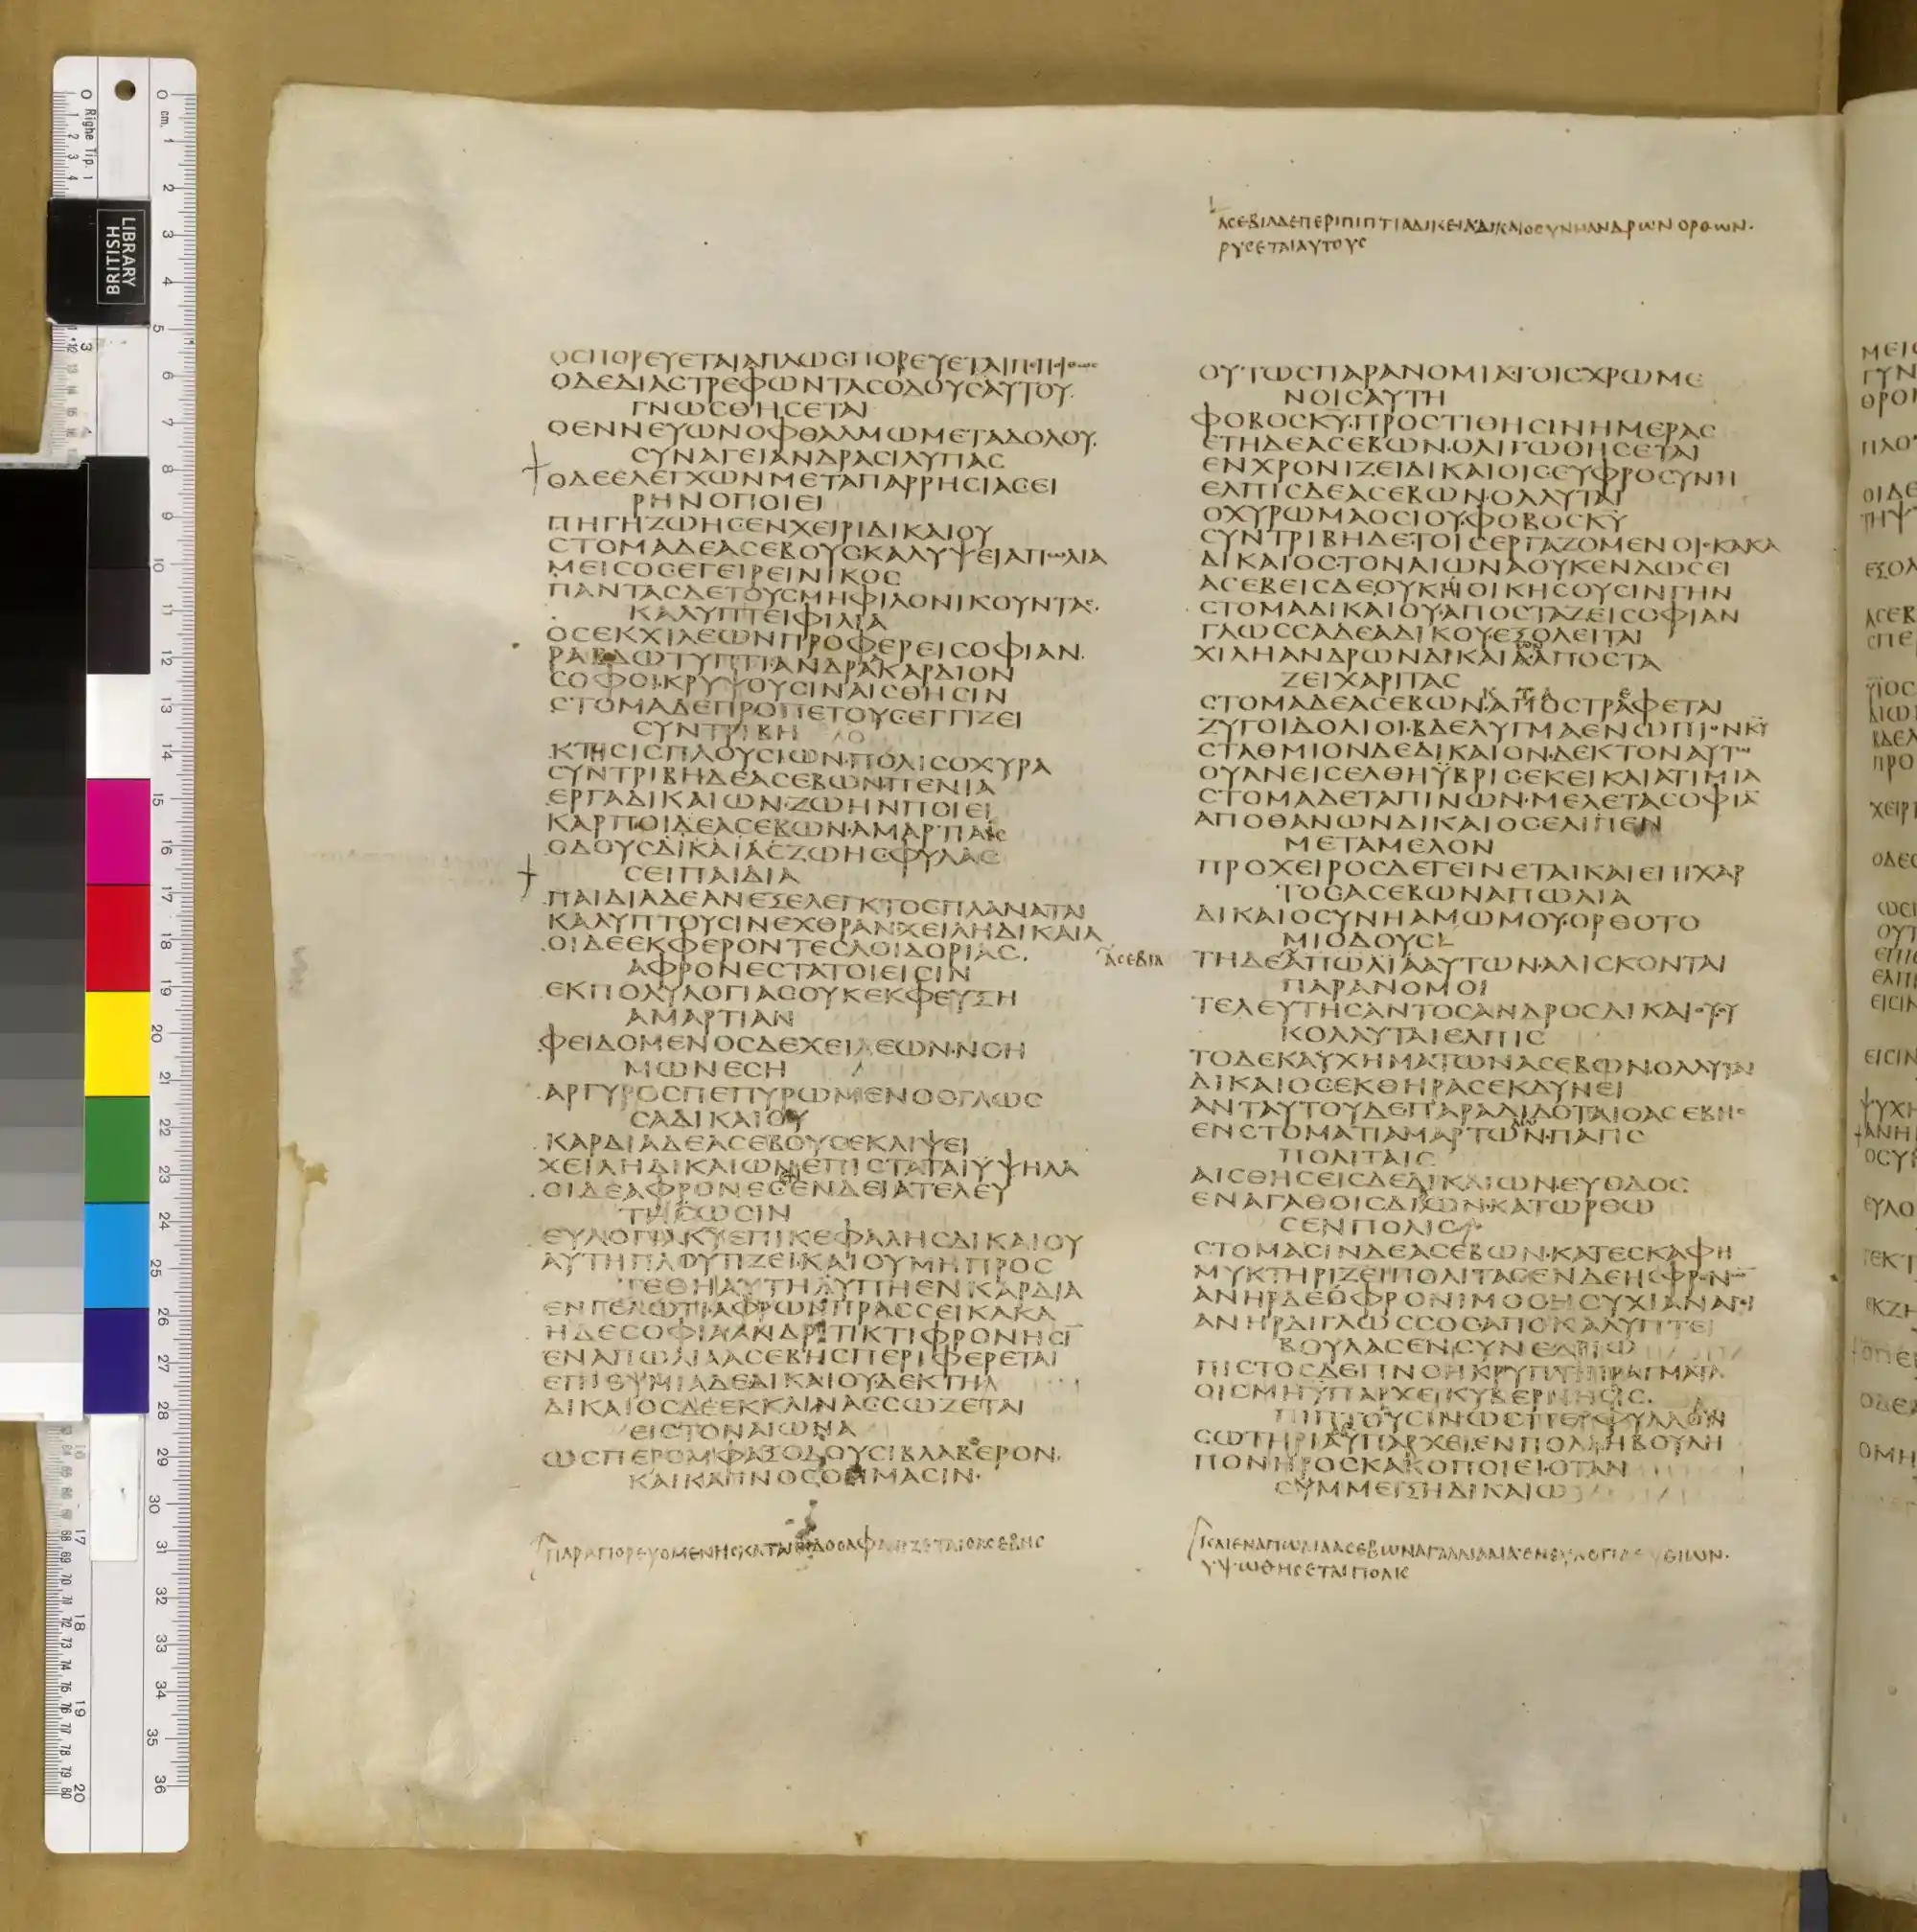 ΑСΕΒΙΑΔΕΠΕΡΙΠΙΠΤΙΑΔΙΚΕΙΑΔΙΚΑΙΟСΥΝΗΑΝΔΡΩΝΟΡΘΩΝ·
ΡΥСΕΤΑΙΑΥΤΟΥС
ΟСΠΟΡΕΥΕΤΑΙΑΠΛΩСΠΟΡΕΥΕΤΑΙ
ΟΔΕΔΙΑСΤΡΕΦΩΝΤΑСΟΔΟΥСΑΥΤΟΥ·
ΓΝΩСΘΗСΕΤΑΙ
ΟΕΝΝΕΥΩΝΟΦΘΑΛΜΩΜΕΤΑΔΟΛΟΥ·
СΥΝΑΓΕΙΑΝΔΡΑСΙΛΥΠΑС
ΟΔΕΕΛΕΓΧΩΝΜΕΤΑΠΑΡΡΗСΙΑСΕΙ
ΡΗΝΟΠΟΙΕΙ
ΠΗΓΗΖΩΗСΕΝΧΕΙΡΙΔΙΚΑΙΟΥ
СΤΟΜΑΔΕΑСΕΒΟΥСΚΑΛΥΨΕΙΑΠΩΛΙΑ
ΜΕΙСΟСΕΓΕΙΡΕΙΝΙΚΟС
ΠΑΝΤΑСΔΕΤΟΥСΜΗΦΙΛΟΝΙΚΟΥΝΤΑС·
ΚΑΛΥΠΤΕΙΦΙΛΙΑ
ΟСΕΚΧΙΛΕΩΝΠΡΟΦΕΡΕΙСΟΦΙΑΝ·
ΡΑΒΔΩΤΥΠΤΙΑΝΔΡΑΚΑΡΔΙΟΝ
СΟΦΟΙ·ΚΡΥΨΟΥСΙΝΑΙСΘΗСΙΝ
СΤΟΜΑΔΕΠΡΟΠΕΤΟΥСΕΓΓΙΖΕΙ
СΥΝΤΡΙΒΗ
ΚΤΗСΙСΠΛΟΥСΙΩΝ·ΠΟΛΙСΟΧΥΡΑ
СΥΝΤΡΙΒΗΔΕΑСΕΒΩΝΠΕΝΙΑ
ΕΡΓΑΔΙΚΑΙΩΝ·ΖΩΗΝΠΟΙΕΙ
ΚΑΡΠΟΙΔΕΑСΕΒΩΝ·ΑΜΑΡΤΙΑС
ΟΔΟΥСΔΙΚΑΙΑСΖΩΗСΦΥΛΑС
СΕΙΠΑΙΔΙΑ
ΠΑΙΔΙΑΔΕΑΝΕΞΕΛΕΓΚΤΟСΠΛΑΝΑΤΑΙ
ΚΑΛΥΠΤΟΥСΙΝΕΧΘΡΑΝΧΕΙΛΗΔΙΚΑΙΑ
ΟΙΔΕΕΚΦΕΡΟΝΤΕСΛΟΙΔΟΡΙΑС·
ΑΦΡΟΝΕСΤΑΤΟΙΕΙСΙΝ
ΕΚΠΟΛΥΛΟΓΙΑСΟΥΚΕΚΦΕΥΞΗ
ΑΜΑΡΤΙΑΝ
ΦΕΙΔΟΜΕΝΟСΔΕΧΕΙΛΕΩΝ·ΝΟΗ
ΜΩΝΕСΗ
ΑΡΓΥΡΟСΠΕΠΥΡΩΜΕΝΟСΓΛΩС
СΑΔΙΚΑΙΟΥ
ΚΑΡΔΙΑΔΕΑСΕΒΟΥСΕΚΛΙΨΕΙ
ΧΕΙΛΗΔΙΚΑΙΩΝΕΠΙСΤΑΤΑΙΥΨΗΛΑ
ΟΙΔΕΑΦΡΟΝΕСΕΝΔΕΙΑΤΕΛΕΥ
ΤΗСΩСΙΝ
ΕΥΛΟΓΙΑΚΥΕΠΙΚΕΦΑΛΗСΔΙΚΑΙΟΥ
ΑΥΤΗΠΛΟΥΤΙΖΕΙ·ΚΑΙΟΥΜΗΠΡΟС
ΤΕΘΗΑΥΤΗΛΥΠΗΕΝΚΑΡΔΙΑ
ΕΝΓΕΛΩΤΙΑΦΡΩΝΠΡΑССΕΙΚΑΚΑ
ΗΔΕСΟΦΙΑΑΝΔΡΙΤΙΚΤΙΦΡΟΝΗСΙ
ΕΝΑΠΩΛΙΑΑСΕΒΗСΠΕΡΙΦΕΡΕΤΑΙ
ΕΠΙΘΥΜΙΑΔΕΔΙΚΑΙΟΥΔΕΚΤΗ
ΔΙΚΑΙΟСΔΕΕΚΚΛΙΝΑССΩΖΕΤΑΙ
ΕΙСΤΟΝΑΙΩΝΑ
ΩСΠΕΡΟΜΦΑΞΟΔΟΥСΙΒΛΑΒΕΡΟΝ·
ΚΑΙΚΑΠΝΟСΟΜΜΑСΙΝ·
ΠΑΡΑΠΟΡΕΥΟΜΕΝΗСΚΑΤΑΙΓΙΔΟСΑΦΑΝΙΖΕΤΑΙΟΑСΕΒΗС
ΟΥΤΩСΠΑΡΑΝΟΜΙΑΤΟΙСΧΡΩΜΕ
ΝΟΙСΑΥΤΗ
ΦΟΒΟСΚΥ·ΠΡΟСΤΙΘΗСΙΝΗΜΕΡΑС
ΕΤΗΔΕΑСΕΒΩΝ·ΟΛΙΓΩΘΗСΕΤΑΙ
ΕΝΧΡΟΝΙΖΕΙΔΙΚΑΙΟΙСΕΥΦΡΟСΥΝΗ
ΕΛΠΙСΔΕΑСΕΒΩΝ·ΟΛΛΥΤΑΙ
ΟΧΥΡΩΜΑΟСΙΟΥ·ΦΟΒΟСΚΥ
СΥΝΤΡΙΒΗΔΕΤΟΙСΕΡΓΑΖΟΜΕΝΟΙС·ΚΑΚΑ
ΔΙΚΑΙΟСΤΟΝΑΙΩΝΑΟΥΚΕΝΔΩСΕΙ
ΑСΕΒΕΙСΔΕΟΥΚΗΟΙΚΗСΟΥСΙΝΓΗΝ
СΤΟΜΑΔΙΚΑΙΟΥ·ΑΠΟСΤΑΖΕΙСΟΦΙΑΝ
ΓΛΩССΑΔΕΑΔΙΚΟΥ·ΕΞΟΛΕΙΤΑΙ
ΧΙΛΗΑΝΔΡΩΝΔΙΚΑΙΑΑΠΟСΤΑ
ΖΕΙΧΑΡΙΤΑС
СΤΟΜΑΔΕΑСΕΒΩΝ·ΑΠΟСΤΡΑΦΕΤΑΙ
ΖΥΓΟΙΔΟΛΙΟΙ·ΒΔΕΛΥΓΜΑΕΝΩΠΙΟΝΚΥ
СΤΑΘΜΙΟΝΔΕΔΙΚΑΙΟΝ·ΔΕΚΤΟΝΑΥΤΩ
ΟΥΑΝΕΙСΕΛΘΗΫΒΡΙСΕΚΕΙΚΑΙΑΤΙΜΙΑ
СΤΟΜΑΔΕΤΑΠΙΝΩΝ·ΜΕΛΕΤΑСΟΦΙΑ
ΑΠΟΘΑΝΩΝΔΙΚΑΙΟСΕΛΙΠΕΝ
ΜΕΤΑΜΕΛΟΝ
ΠΡΟΧΕΙΡΟСΔΕΓΕΙΝΕΤΑΙΚΑΙΕΠΙΧΑΡ
ΤΟСΑСΕΒΩΝΑΠΩΛΙΑ
ΔΙΚΑΙΟСΥΝΗΑΜΩΜΟΥ·ΟΡΘΟΤΟ
ΜΙΟΔΟΥС
ΑСΕΒΙΑ
ΤΗΔΕΑΠΩΛΙΑΑΥΤΩΝ·ΑΛΙСΚΟΝΤΑΙ
ΠΑΡΑΝΟΜΟΙ
ΤΕΛΕΥΤΗСΑΝΤΟСΑΝΔΡΟСΔΙΚΑΙΟΥ·ΟΥ
ΚΟΛΛΥΤΑΙΕΛΠΙС
ΤΟΔΕΚΑΥΧΗΜΑΤΩΝΑСΕΒΩΝ·ΟΛΛΥΤΑΙ
ΔΙΚΑΙΟСΕΚΘΗΡΑСΕΚΔΥΝΕΙ
ΑΝΤΑΥΤΟΥΔΕΠΑΡΑΔΙΔΟΤΑΙΟΑСΕΒΗС
ΕΝСΤΟΜΑΤΙΑΜΑΡΤΩΝ·ΠΑΓΙС
ΠΟΛΙΤΑΙС
ΑΙСΘΗСΕΙСΔΕΔΙΚΑΙΩΝ·ΕΥΟΔΟС
ΕΝΑΓΑΘΟΙСΔΙΚΩΝ·ΚΑΤΩΡΘΩ
СΕΝΠΟΛΙС
СΤΟΜΑСΙΝΔΕΑСΕΒΩΝ·ΚΑΤΕСΚΑΦΗ
ΜΥΚΤΗΡΙΖΕΙΠΟΛΙΤΑСΕΝΔΕΗСΦΡΕΝ
ΑΝΗΡΔΕΦΡΟΝΙΜΟСΗСΥΧΙΑΝΑΓΙ
ΑΝΗΡΔΙΓΛΩССΟСΑΠΟΚΑΛΥΠΤΕΙ
ΒΟΥΛΑСΕΝСΥΝΕΔΡΙΩ
ΠΙСΤΟСΔΕΠΝΟΗΚΡΥΠΤΙΠΡΑΓΜΑΤΑ
ΟΙСΜΗΥΠΑΡΧΕΙΚΥΒΕΡΝΗСΙС·
ΠΙΠΤΟΥСΙΝΩСΠΕΡΦΥΛΛΟΝ
СΩΤΗΡΙΑΥΠΑΡΧΕΙ·ΕΝΠΟΛΛΗΒΟΥΛΗ
ΠΟΝΗΡΟСΚΑΚΟΠΟΙΕΙ·ΟΤΑΝ
СΥΜΜΕΙΞΗΔΙΚΑΙΩ
ΚΑΙΕΝΑΠΩΛΙΑΑСΕΒΩΝΑΓΑΛΛΙΑΜΑ·ΕΝΕΥΛΟΓΙΑΕΥΘΙΩΝ·
ΥΨΩΘΗСΕΤΑΙΠΟΛΙС
BRITISH
LIBRARY
Righe Tip. 1
cm.